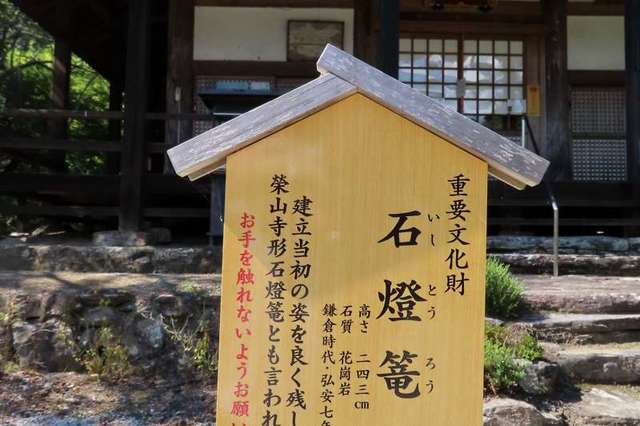 重要文化財
石燈篭
いし とう ろう
高さ 二四三cm
石質 花崗岩
鎌倉時代・弘安七年
建立当初の姿を良く残し
榮山寺形石燈篭とも言われ
お手を触れないようお願い